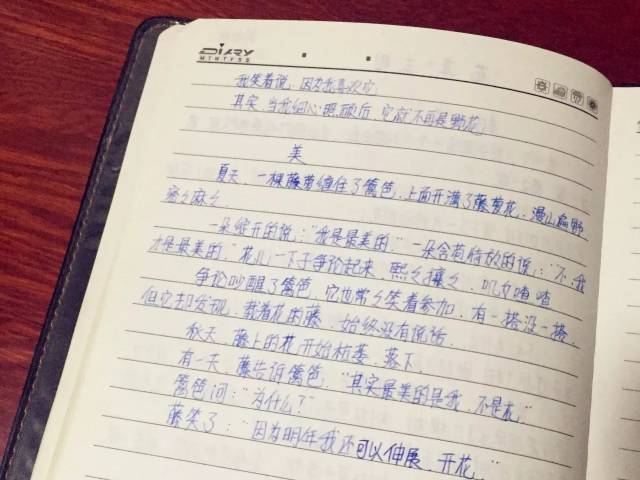 DIARY
MTHTFSS
我笑着说，因为我喜欢它
其实，当我细心照顾后，它就不再是野花。
美
夏天，一棵藤萝缠住了篱笆，上面开满了藤萝花，漫山遍野
密々麻々。
一朵绽开的说："我是最美的。"一朵含苞待放的说："不，我
才是最美的。"花儿一下子争论起来，熙々攘々，叽叽喳喳
争论吵醒了篱笆，它也常々笑着参加，有一搭没一搭，
但它却发现，载着花的藤，始终没有说话。
秋天，藤上的花开始枯萎、落下。
有一天，藤告诉篱笆，"其实最美的是我，不是花。"
篱笆问："为什么？"
藤笑了："因为明年我还可以伸展、开花。"